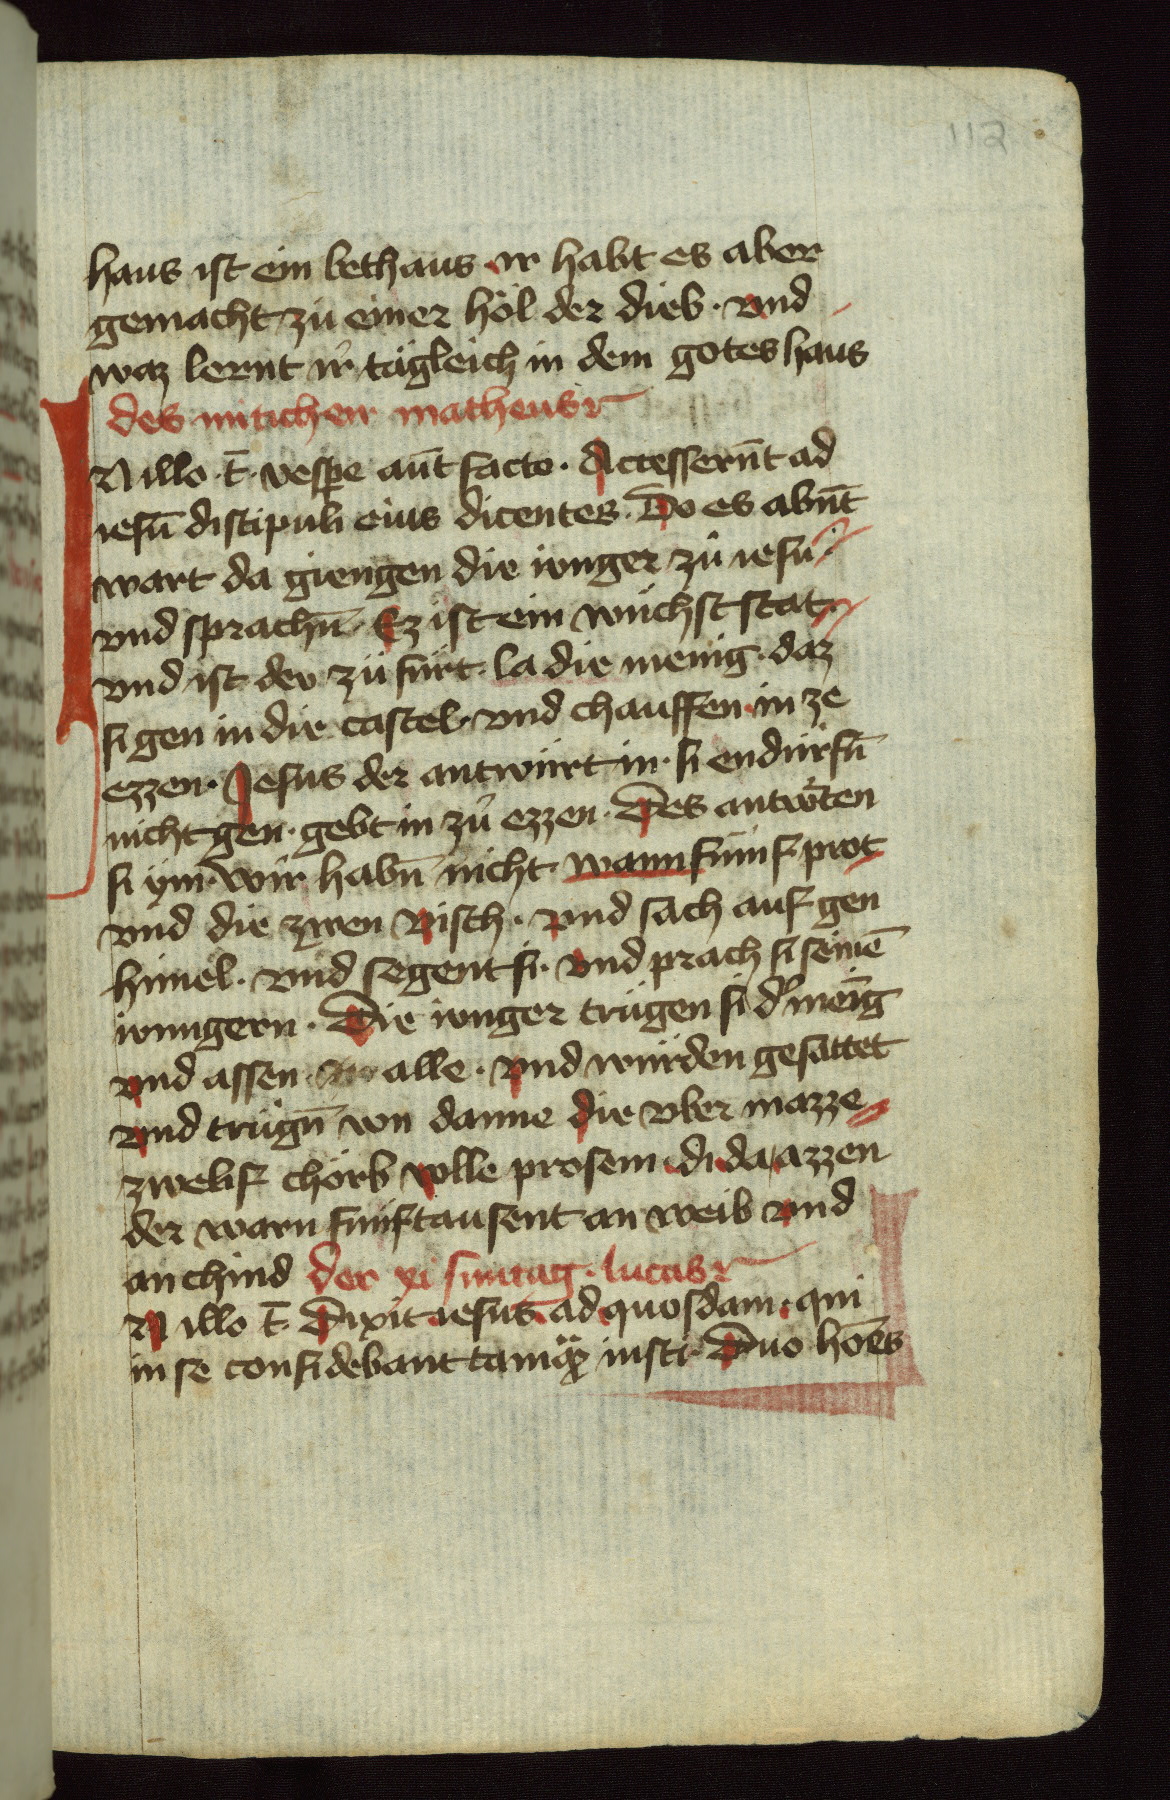 112
haus ist ein bethaus ir habt es aber
gemacht zů einer höl der dieb · vnd
waz lernt ir tägleich in dem gotes haus
des mitichen matheus
IN illo · t̄ · vespe aūt facto · Accesserūt ad
iesū discipuli eius dicentes · Do es abnt̄
wart da giengen die iunger zů iesu ·
vnd sprachn̄ · Ez ist ein wůchst stat ·
vnd ist der zü fürt · la die menig · daz
si gen in die castel · vnd chauffen in ze
ezzen · Jesus der antwürt in · si endürfn̄
nicht gen · gebt in zů ezzen · Des antwrten
si ym · wir habn̄ nicht · wann fümf prot
vnd die zwen visch · vnd sach auf gen
himel · vnd segent si · vnd prach si seinē
iunngern · Die iunger trůgen si d' meīg
vnd assen alle · vnd wůrden gesattet
vnd trůgn̄ von danne die vber mazze
zwelif chörb volle prosem · di da azzen
der warn fumftausent an weib vnd
an chind der xi suntag · lucas
IN illo t̄ · Dixit iesus ad quosdam · qui
in se confidebant tamqͣ iusti · Duo hōes